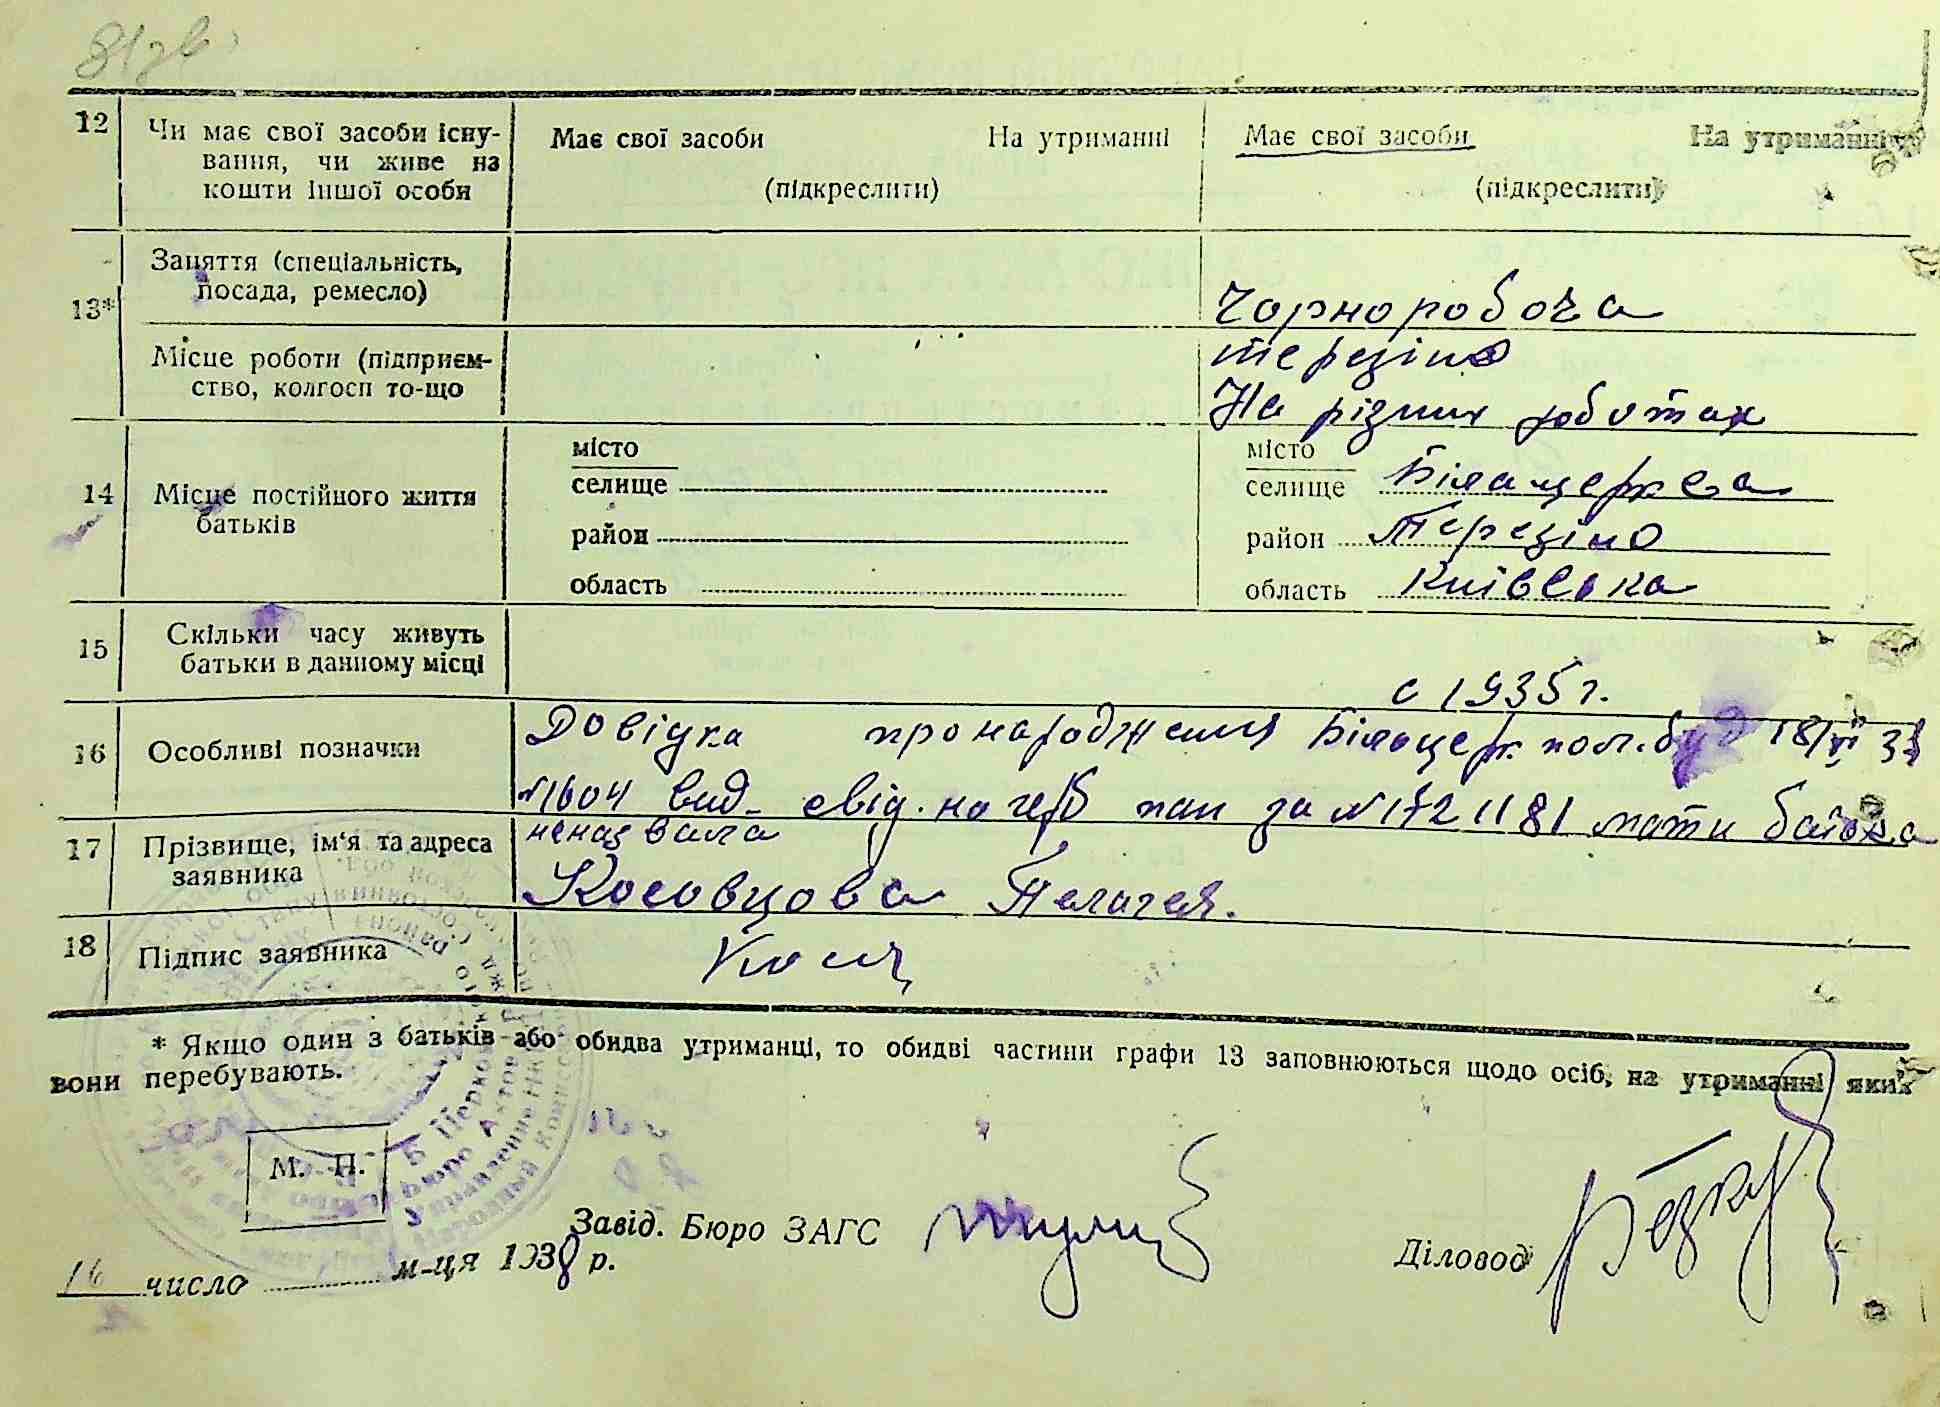 81зв
12 Чи має свої засоби існу-
вання, чи живе на
кошти іншої особи
Має свої засоби На утриманні
(підкреслити)
Має свої засоби На утриманні
(підкреслити)
13* Заняття (спеціальність,
посада, ремесло)
Чорноробоча
Місце роботи (підприєм-
ство, колгосп то-що
терезіно
На різних роботах
14 Місце постійного життя
батьків
місто
селище
район
область
місто
селище Білацерква
район Терезіно
область Київська
15 Скільки часу живуть
батьки в данному місці
с 1935 г.
16 Особливі позначки
Довідка про народження Білоцерк. пол. 18/VI 38
№1604 вид. свід. на герб пап за №1721181 мати батька
неназвала
17 Прізвище, ім'я та адреса
заявника
Косовцова Пелагея.
18 Підпис заявника
* Якщо один з батьків або обидва утриманці, то обидві частини графи 13 заповнюються щодо осіб, на утриманні яких
вони перебувають.
М. П.
Завід. Бюро ЗАГС
Діловод
16 число м-ця 1938 р.